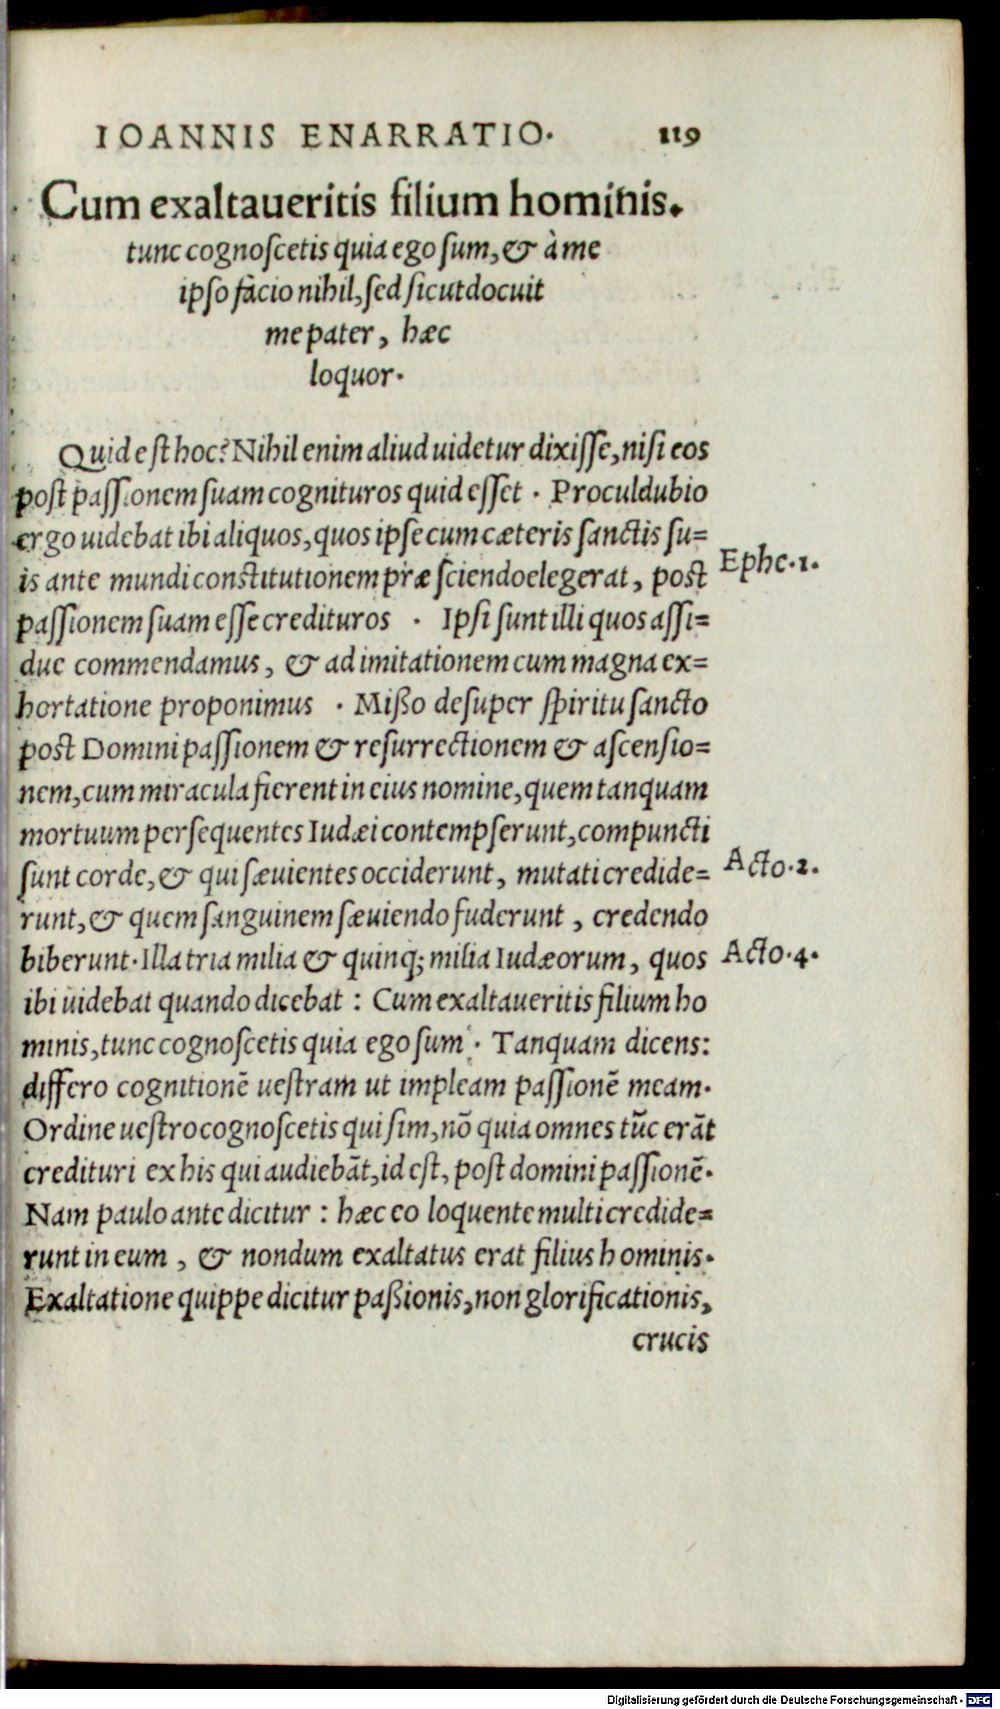 IOANNIS ENARRATIO. 119
Cum exaltaueritis filium hominis.
tunc cognoscetis quia ego sum, & à me
ipso facio nihil, sed sicut docuit
me pater, hæc
loquor.
Quid est hoc? Nihil enim aliud uidetur dixisse, nisi eos
post passionem suam cognituros quid esset. Proculdubio
ergo uidebat ibi aliquos, quos ipse cum cæteris sanctis su=
is ante mundi constitutionem præsciendo elegerat, post
Ephe.1.
passionem suam esse credituros. Ipsi sunt illi quos assi=
due commendamus, & ad imitationem cum magna ex=
hortatione proponimus. Mißo desuper spiritu sancto
post Domini passionem & resurrectionem & ascensio=
nem, cum miracula fierent in eius nomine, quem tanquam
mortuum persequentes Iudæi contempserunt, compuncti
sunt corde, & qui sæuientes occiderunt, mutati credide=
Acto.2.
runt, & quem sanguinem sæuiendo fuderunt, credendo
biberunt. Illa tria milia & quinq; milia Iudæorum, quos
Acto.4.
ibi uidebat quando dicebat: Cum exaltaueritis filium ho
minis, tunc cognoscetis quia ego sum. Tanquam dicens:
differo cognitionē uestram ut impleam passionē meam.
Ordine uestro cognoscetis qui sim, nō quia omnes tūc erāt
credituri ex his qui audiebāt, id est, post domini passionē.
Nam paulo ante dicitur: hæc eo loquente multi credide=
runt in eum, & nondum exaltatus erat filius hominis.
Exaltatione quippe dicitur paßionis, non glorificationis,
crucis
Digitalisierung gefördert durch die Deutsche Forschungsgemeinschaft - DFG